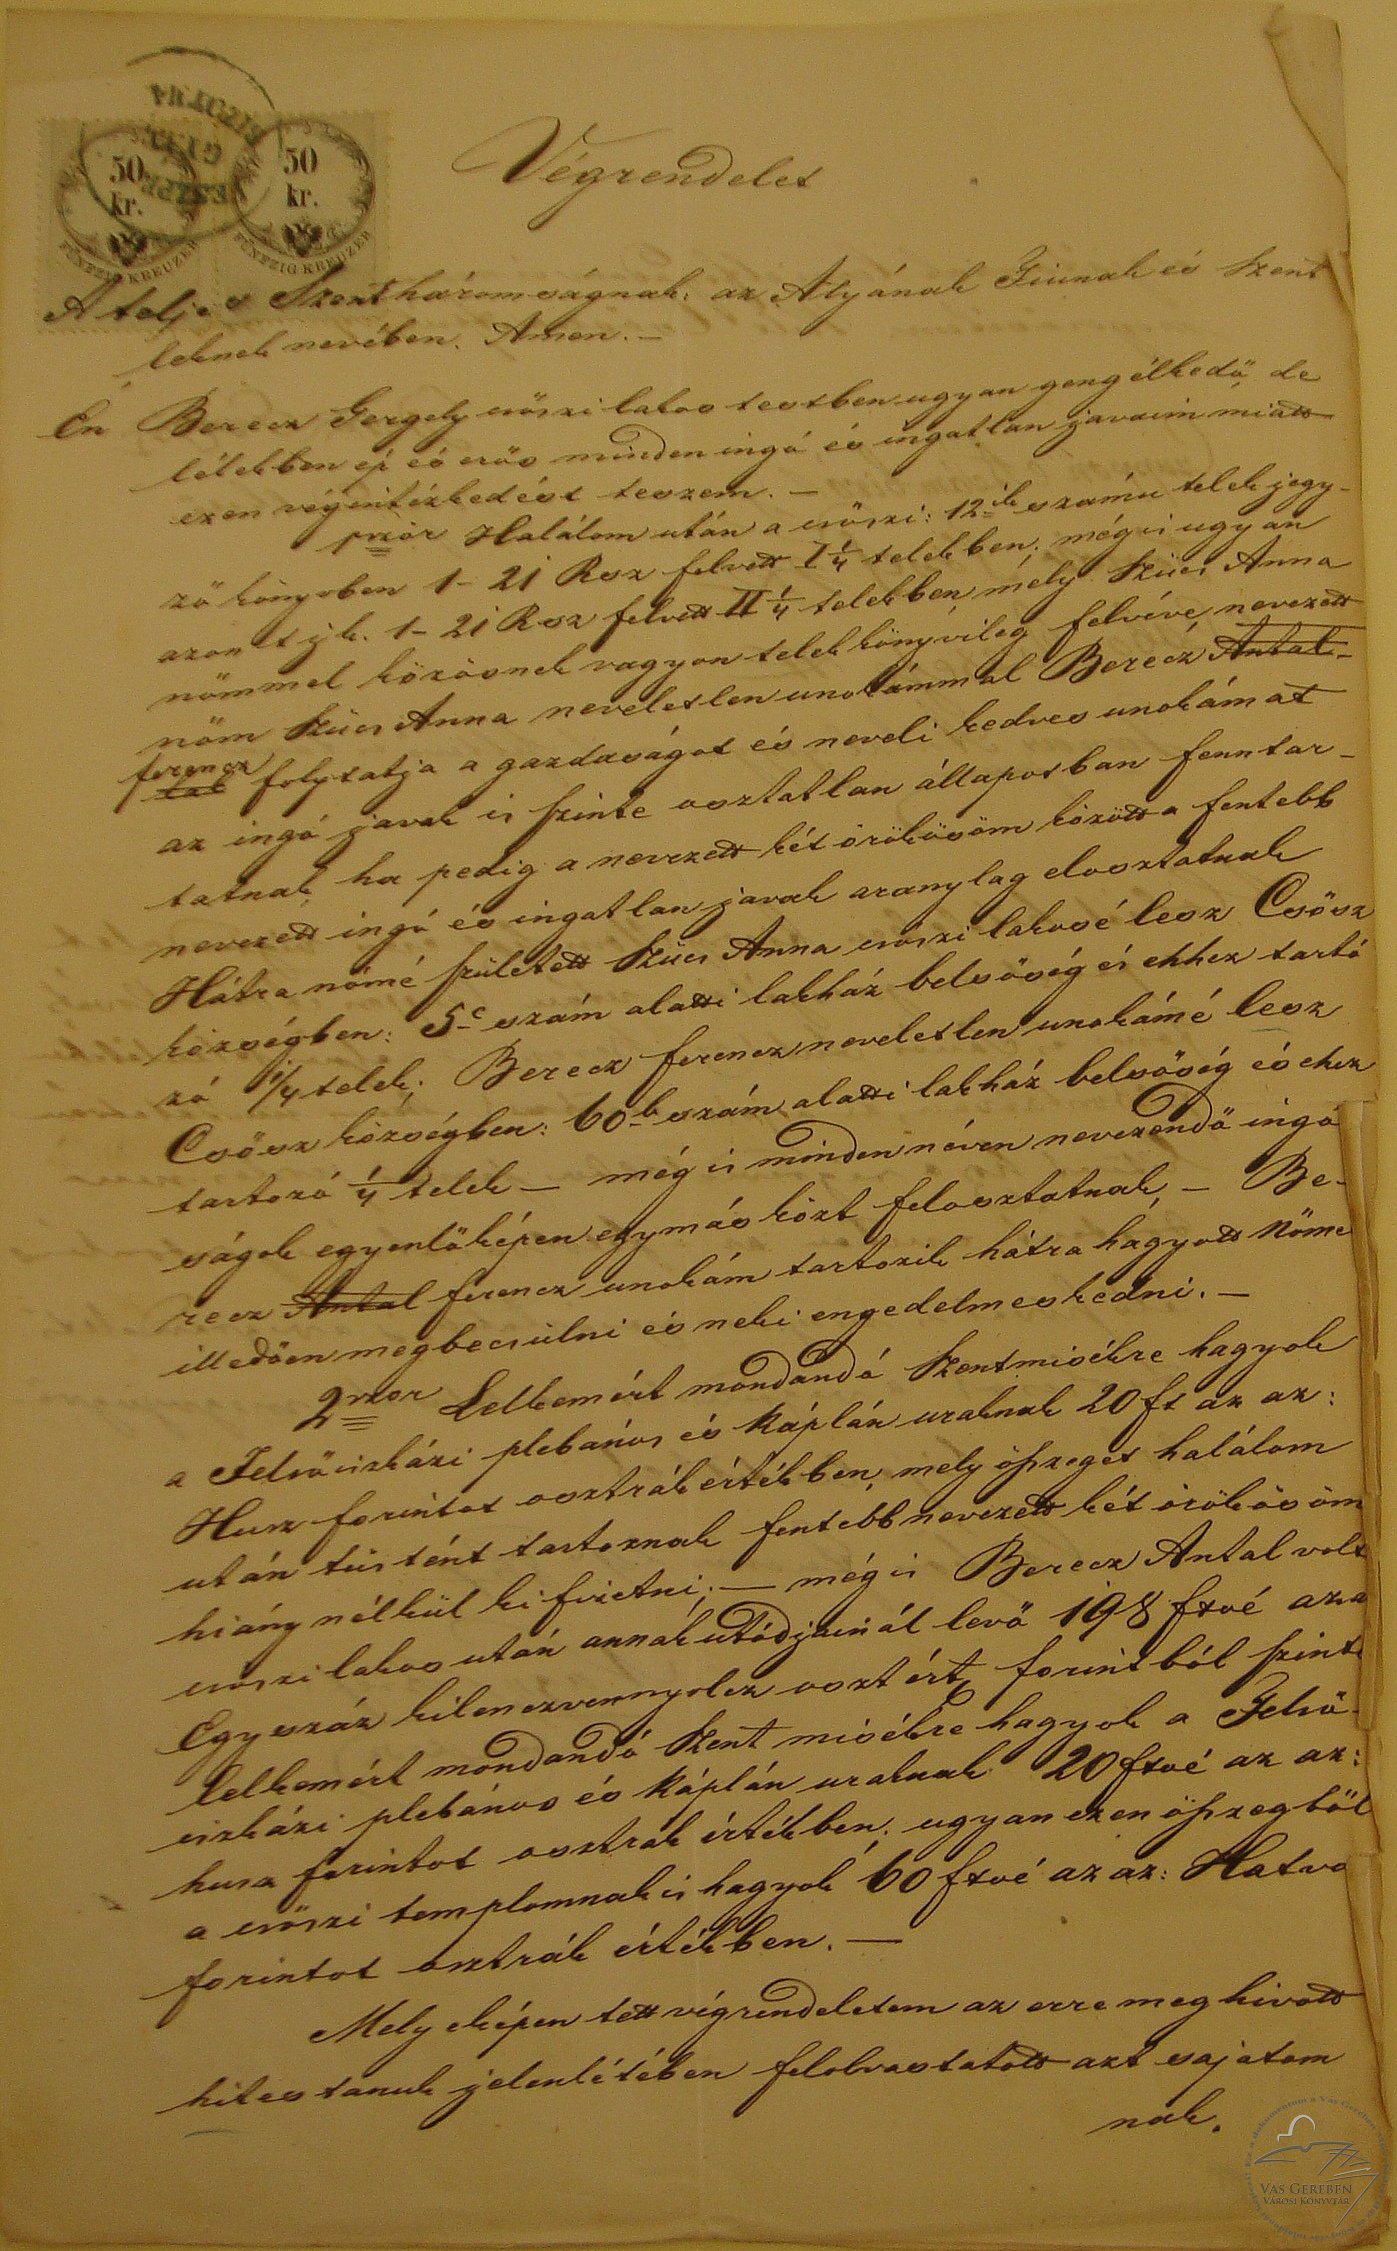 50 kr.
FÜNFZIG KREUZER
50 kr.
FÜNFZIG KREUZER
Végrendelet
A teljes Szentháromságnak, az Atyának Fiunak és Szent
léleknek nevében. Amen. –
Én Berecz Gergely csőszi lakos testben ugyan gengélkedő, de
lélekben ép és erős minden ingó és ingatlan javaim miatt
ezen végintézkedést teszem. –
1ször Halálom után a csőszi: 12ik számu telek jegy-
ző könyvben 1–21 Rsz felvett I 1/4 telekben, mégis ugyan
azon tjk. 1–21 Rsz felvett II 1/4 telekben, mely Szücs Anna
nőmmel közösnek vagyon telekkönyvileg felvéve, nevezett
nőm Szücs Anna neveletlen unokámmal Berecz Antal-
ferencz tal folytatja a gazdaságot és neveli kedves unokámat
az ingó javak is szinte osztatlan állapotban fenntar-
tatnak, ha pedig a nevezett két örökösöm között a fentebb
nevezett ingó és ingatlan javak aranylag elosztatnak
Hátra nőmé született Szücs Anna csőszi lakosé lesz Csősz
községben: 5c szám alatti lakház belsőség és ehhez tartó
zó 1/4 telek; Berecz ferencz neveletlen unokámé lesz
Csősz községben: 60b szám alatti lakház belsőség és ehez
tartozó 1/4 telek – mégis minden néven nevezendő ingó
ságok egyenlőképen egymás közt felosztatnak, – Be-
recz Antal ferencz unokám tartozik hátra hagyott Nőme
illedően megbecsülni és neki engedelmeskedni. –
2szor Lelkemért mondandó Szentmisékre hagyok
a Felsőiszkázi plebános és káplán uraknak 20 ft az az:
Husz forintot osztrák értékben, mely összeget halálom
után tüstént tartoznak fentebb nevezett két örökösöm
hiány nélkül kifizetni; – mégis Berecz Antal volt
csöszi lakos után annak utódjainál levő 198 ftvé azaz
Egyszáz kilenczvennyolcz oszt ért forintból szinte
lelkemért mondandó Szent misékre hagyok a Felső-
iszkázi plebános és káplán uraknak 20 ftvé az az:
husz forintot osztrák értékben, ugyan ezen összegböl
a csöszi templomnak is hagyok 60 ftvé az az: Hatva
forintot osztrák értékben. –
Mely eképen tett végrendeletem az erre meg hivott
hites tanuk jelenlétében felolvastatott azt sajatom
nak.
VAS GEREBEN
VÁROSI KÖNYVTÁR